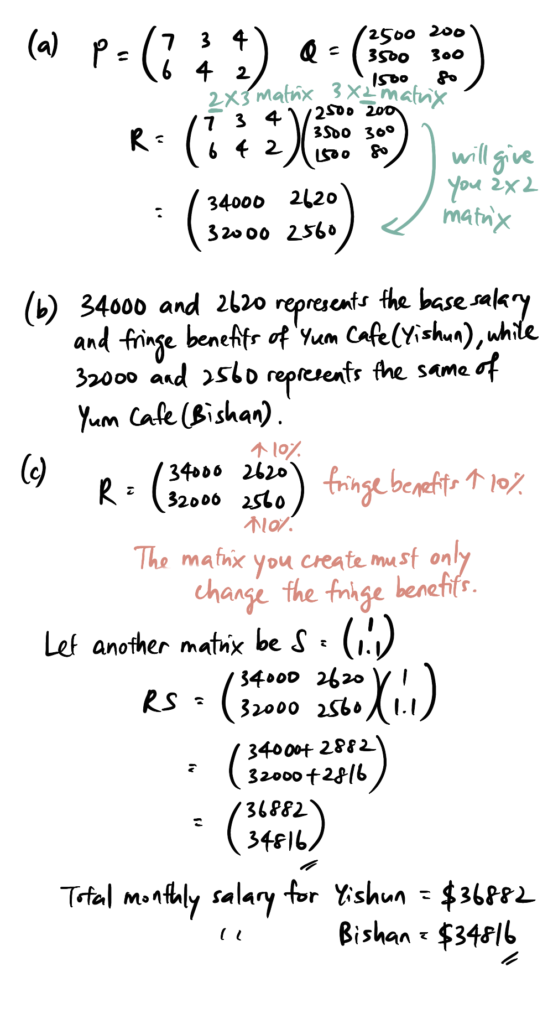 (a) P = (7 3 4 / 6 4 2) Q = (2500 200 / 3500 300 / 1500 80)
2x3 matrix 3x2 matrix
R = (7 3 4 / 6 4 2)(2500 200 / 3500 300 / 1500 80)
will give
you 2x2
matrix
= (34000 2620 / 32000 2560)
(b) 34000 and 2620 represents the base salary
and fringe benefits of Yum Cafe (Yishun), while
32000 and 2560 represents the same of
Yum Cafe (Bishan).
(c)
↑ 10%
R = (34000 2620 / 32000 2560) fringe benefits ↑ 10%
↑10%
The matrix you create must only
change the fringe benefits.
Let another matrix be S = (1 / 1.1)
RS = (34000 2620 / 32000 2560)(1 / 1.1)
= (34000+2882 / 32000+2816)
= (36882 / 34816)
Total monthly salary for Yishun = $36882
" Bishan = $34816